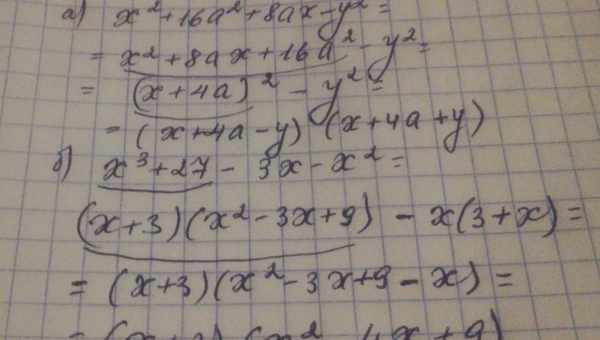 а) x² + 16a² + 8ax - y² =
= x² + 8ax + 16a² - y² =
= (x + 4a)² - y² =
= (x + 4a - y) (x + 4a + y)
б) x³ + 27 - 3x - x² =
(x + 3)(x² - 3x + 9) - x(3 + x) =
= (x + 3)(x² - 3x + 9 - x) =
= (x + 3) (x² - 4x + 9)